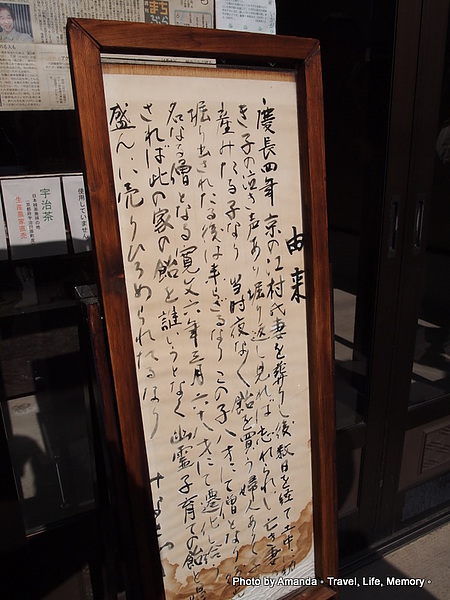 由来
慶長四年 京の江村氏妻を葬りし後数日を経て土中
き子の泣き声あり堀り返し見れば忘れられし亡き妻
産みたる子なり 当時夜な夜な飴を買う婦人ありて
堀り出されたる後は来らざるなりこの子八才にて僧となり
名なる僧となる寛文六年三月六十八才にて遷化し給う
されば此の家の飴を誰いうとなく幽霊子育ての飴と
盛んに売りひろめられたるなり
宇治茶
生産農家直売
使用していません。
Photo by Amanda。Travel, Life, Memory。